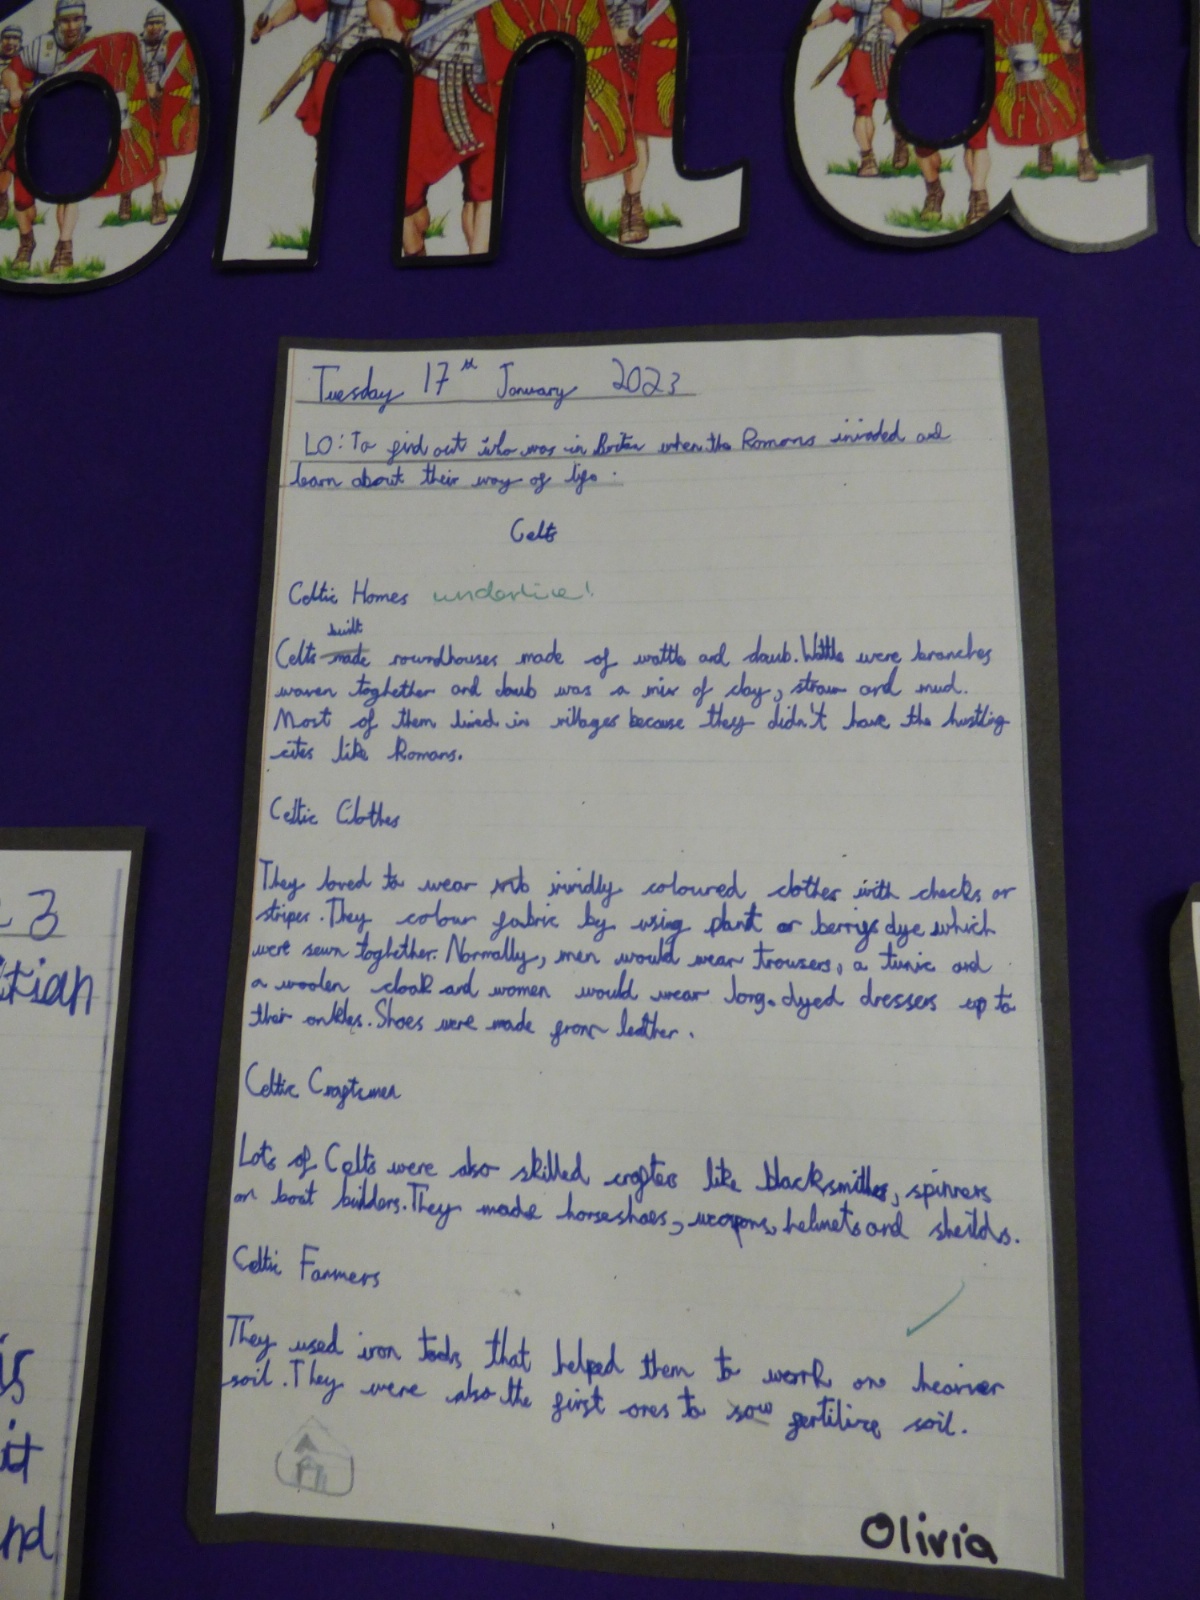 oma
Tuesday 17th January 2023
LO: To find out who was in Britain when the Romans invaded and
learn about their way of life.
Celts
Celtic Homes underline!
built
Celts made roundhouses made of wattle and daub. Wattle were branches
waven toghether and daub was a mix of clay, straw and mud.
Most of them lived in villages because they didn't have the hustling
cites like Romans.
Celtic Clothes
They loved to wear vividly coloured clothes with checks or
stripes. They colour fabric by using plant or berries dye which
were sewn toghether. Normally, men would wear trousers, a tunic and
a woolen cloak and women would wear long dyed dressers up to
their ankles. Shoes were made from leather.
Celtic Craftsmen
Lots of Celts were also skilled crafters like blacksmiths, spinners
or boat builders. They made horseshoes, weapons, helmets and sheilds.
Celtic Farmers
They used iron tools that helped them to work on heavier
soil. They were also the first ones to sow fertilize soil.
Olivia
23
tian
is
it
nd